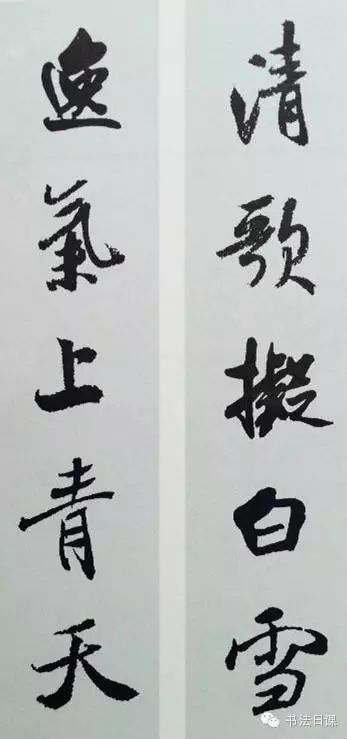 清歌擬白雪
逸氣上青天
书法日课